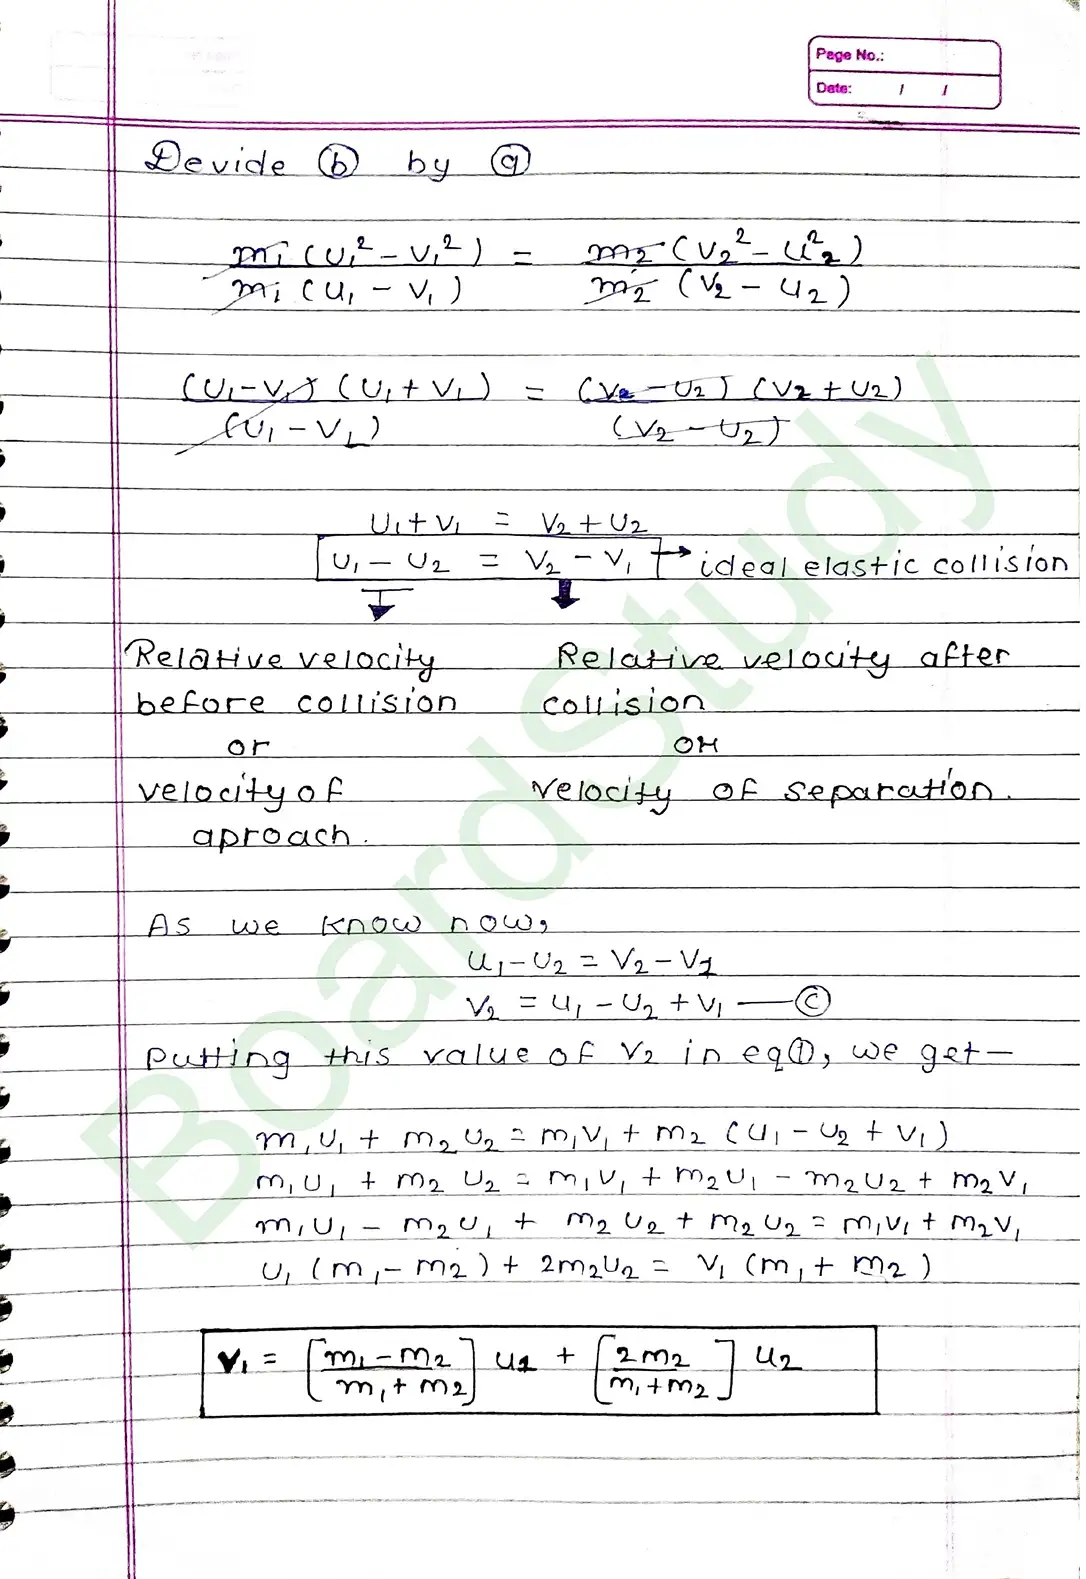 Page No.:
Date: / /
Devide ⓑ by ⓐ
m₁(u₁² - v₁²) = m₂(v₂² - u₂²)
m₁(u₁ - v₁) m₂(v₂ - u₂)
(u₁-v₁)(u₁+v₁) = (v₂-u₂)(v₂+u₂)
(u₁-v₁) (v₂-u₂)
u₁+v₁ = v₂+u₂
u₁-u₂ = v₂-v₁ → ideal elastic collision
Relative velocity Relative velocity after
before collision collision
or or
velocity of velocity of separation.
aproach.
As we know now,
u₁-u₂ = v₂-v₁
v₂ = u₁-u₂+v₁ —ⓒ
putting this value of v₂ in eq①, we get-
m₁u₁ + m₂u₂ = m₁v₁ + m₂(u₁-u₂+v₁)
m₁u₁ + m₂u₂ = m₁v₁ + m₂u₁ - m₂u₂ + m₂v₁
m₁u₁ - m₂u₁ + m₂u₂ + m₂u₂ = m₁v₁ + m₂v₁
u₁(m₁-m₂) + 2m₂u₂ = v₁(m₁+m₂)
v₁ = [m₁-m₂ / m₁+m₂] u₁ + [2m₂ / m₁+m₂] u₂
BoardStudy